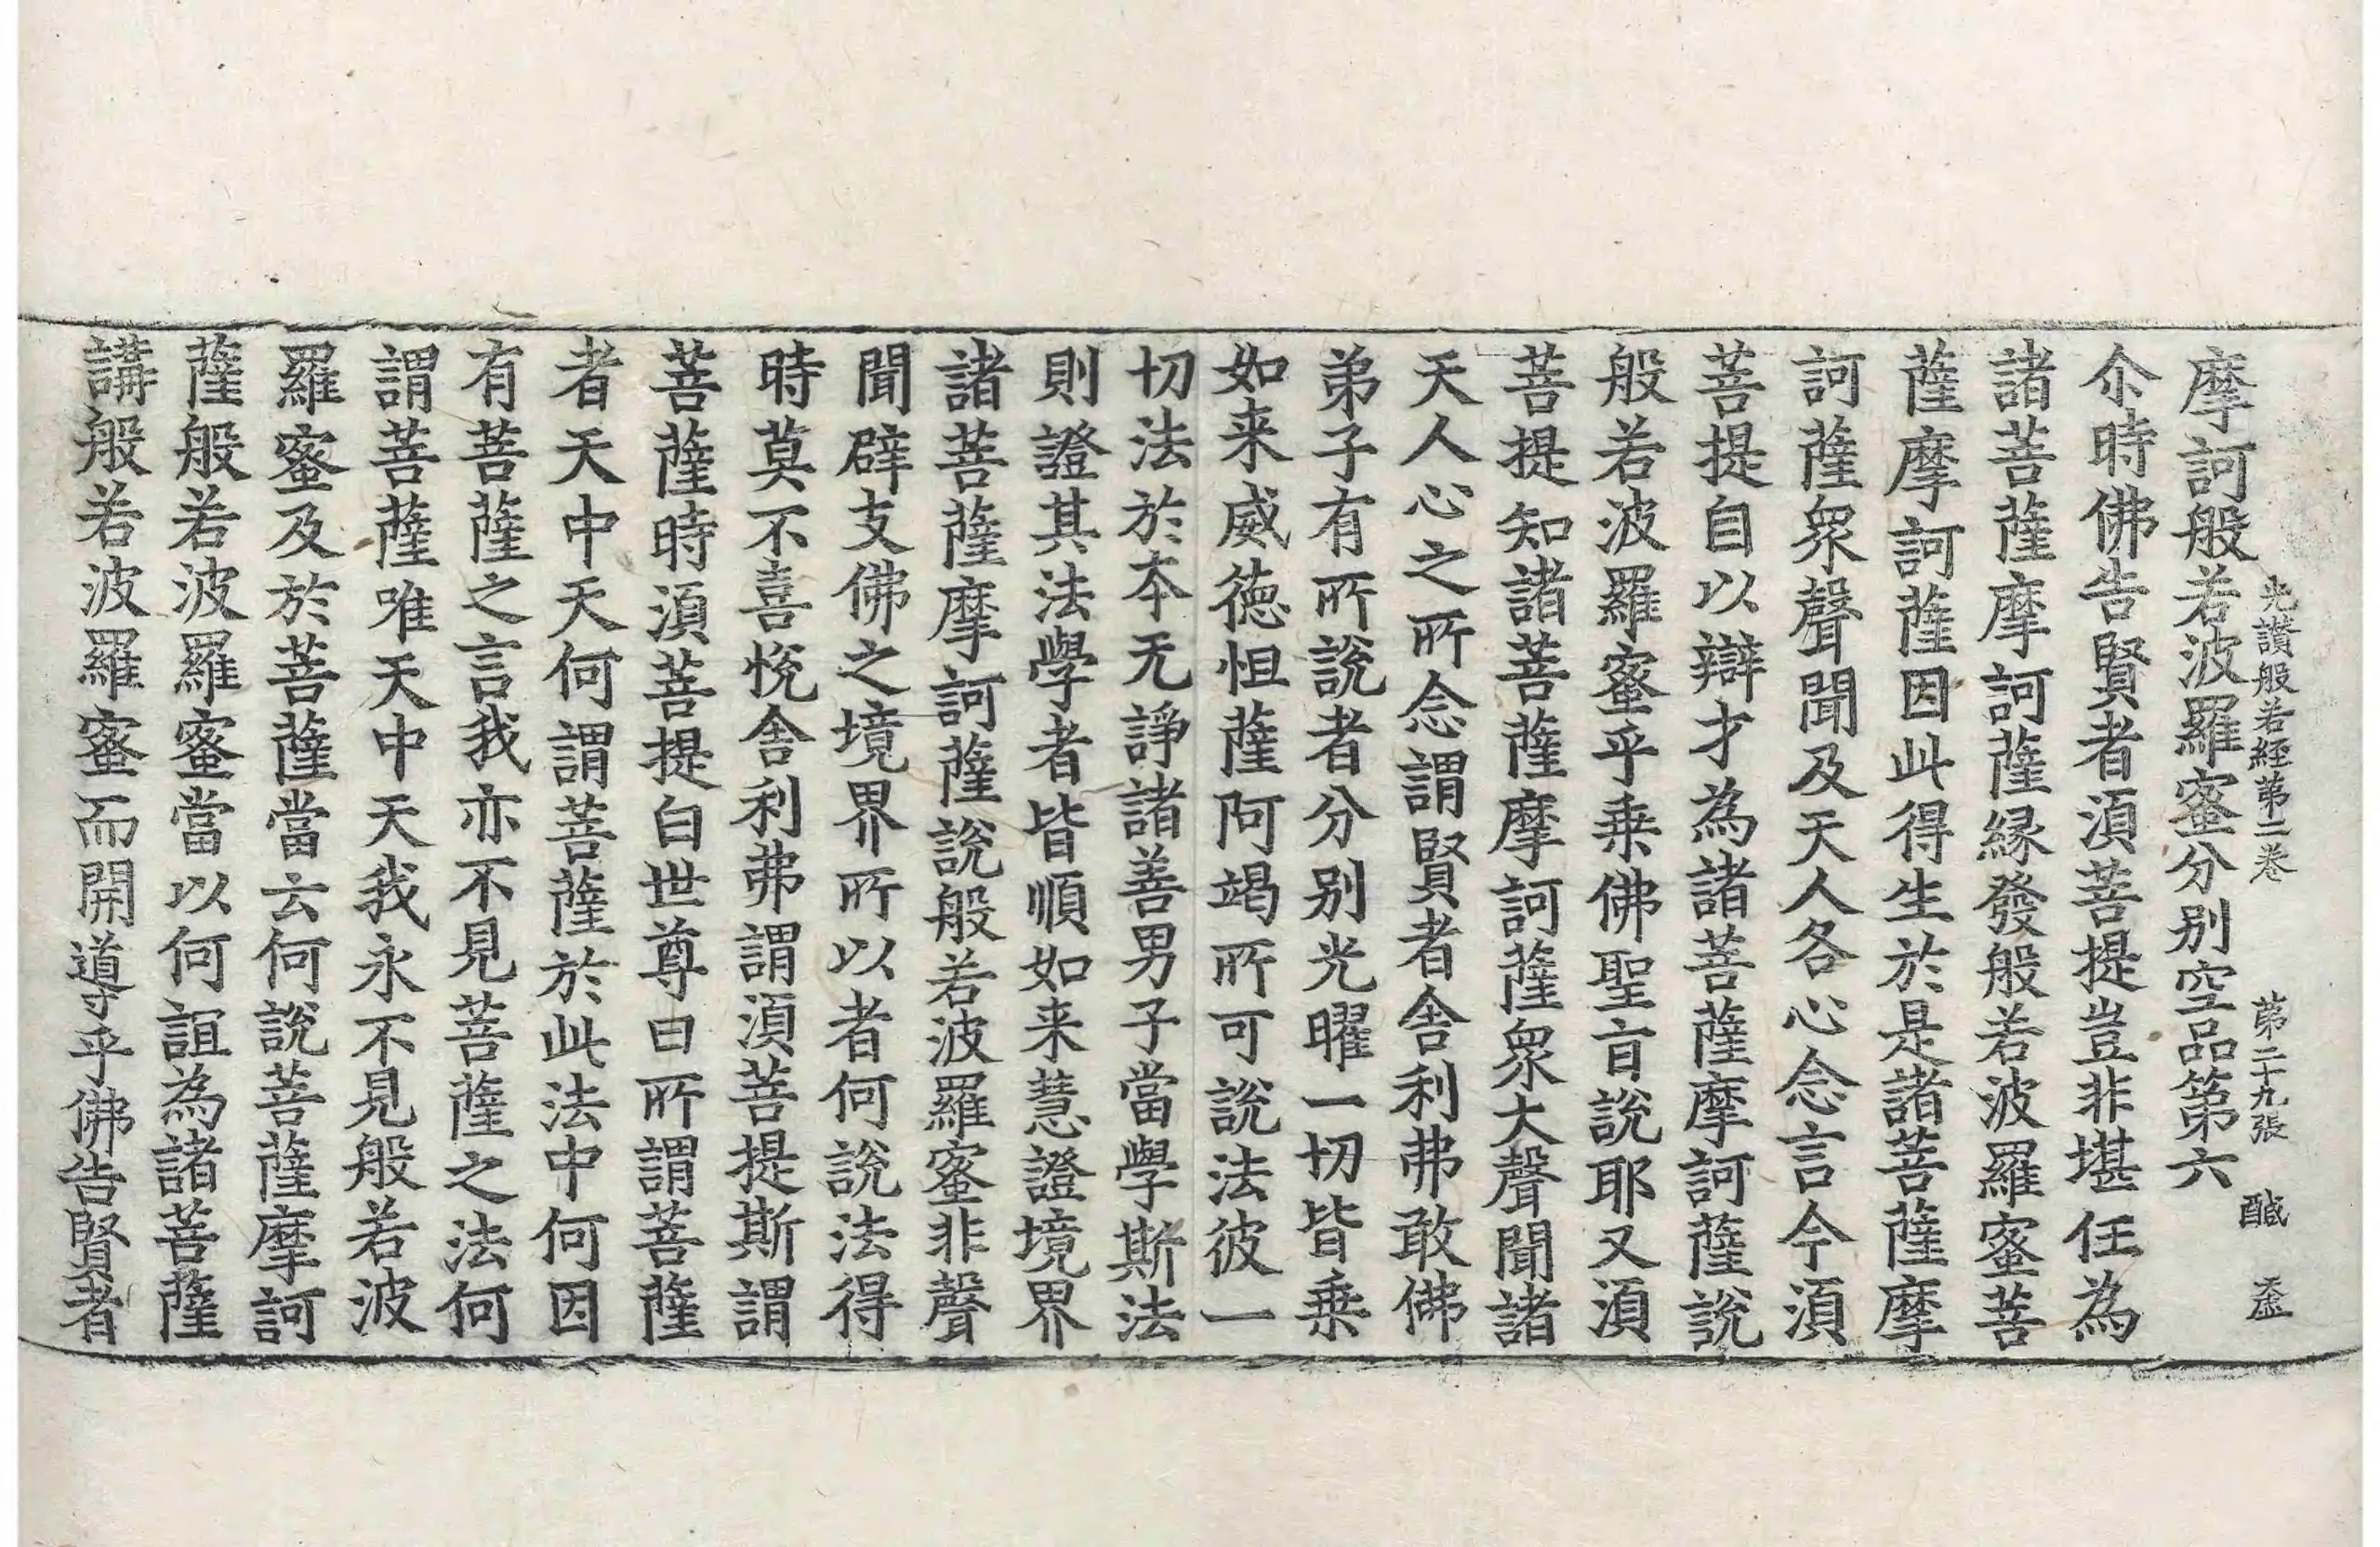 光讃般若經第二卷　第二十九張　醎　
摩訶般若波羅蜜分别空品第六
尒時佛告賢者湏菩提豈非堪任為
諸菩薩摩訶薩縁發般若波羅蜜菩
薩摩訶薩因此得生於是諸菩薩摩
訶薩衆聲聞及天人各心念言今湏
菩提自以辯才為諸菩薩摩訶薩說
般若波羅蜜乎乗佛聖㫖說耶又湏
菩提知諸菩薩摩訶薩衆大聲聞諸
天人心之所念謂賢者舎利弗敢佛
弟子有所說者分别光曜一切皆乗
如来威德怛薩阿竭所可說法彼一
切法於本无諍諸善男子當學斯法
則證其法學者皆順如来慧證境界
諸菩薩摩訶薩說般若波羅蜜非聲
聞辟支佛之境界所以者何說法得
時莫不喜悅舎利弗謂湏菩提斯謂
菩薩時湏菩提白世尊曰所謂菩薩
者天中天何謂菩薩於此法中何因
有菩薩之言我亦不見菩薩之法何
謂菩薩唯天中天我永不見般若波
羅蜜及於菩薩當云何說菩薩摩訶
薩般若波羅蜜當以何誼為諸菩薩
講般若波羅蜜而開導乎佛告賢者